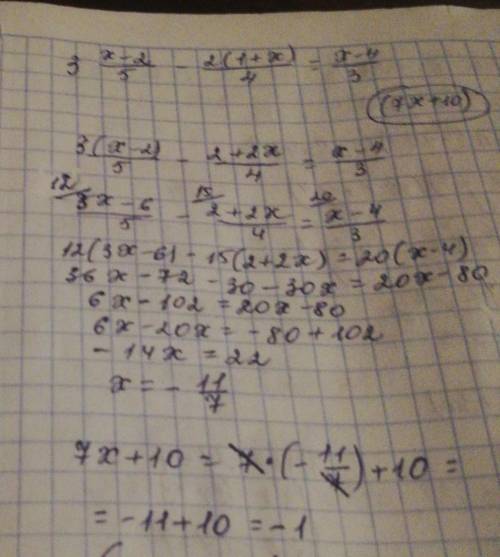 3 (x-2)/5 - 2(1+x)/4 = (x-4)/3
(7x+10)
3(x-2)/5 - (2+2x)/4 = (x-4)/3
12/ (3x-6)/5 - 15/ (2+2x)/4 = 20/ (x-4)/3
12(3x-6) - 15(2+2x) = 20(x-4)
36x - 72 - 30 - 30x = 20x - 80
6x - 102 = 20x - 80
6x - 20x = -80 + 102
- 14x = 22
x = - 11/7
7x + 10 = 7 · (- 11/7) + 10 =
= -11 + 10 = -1